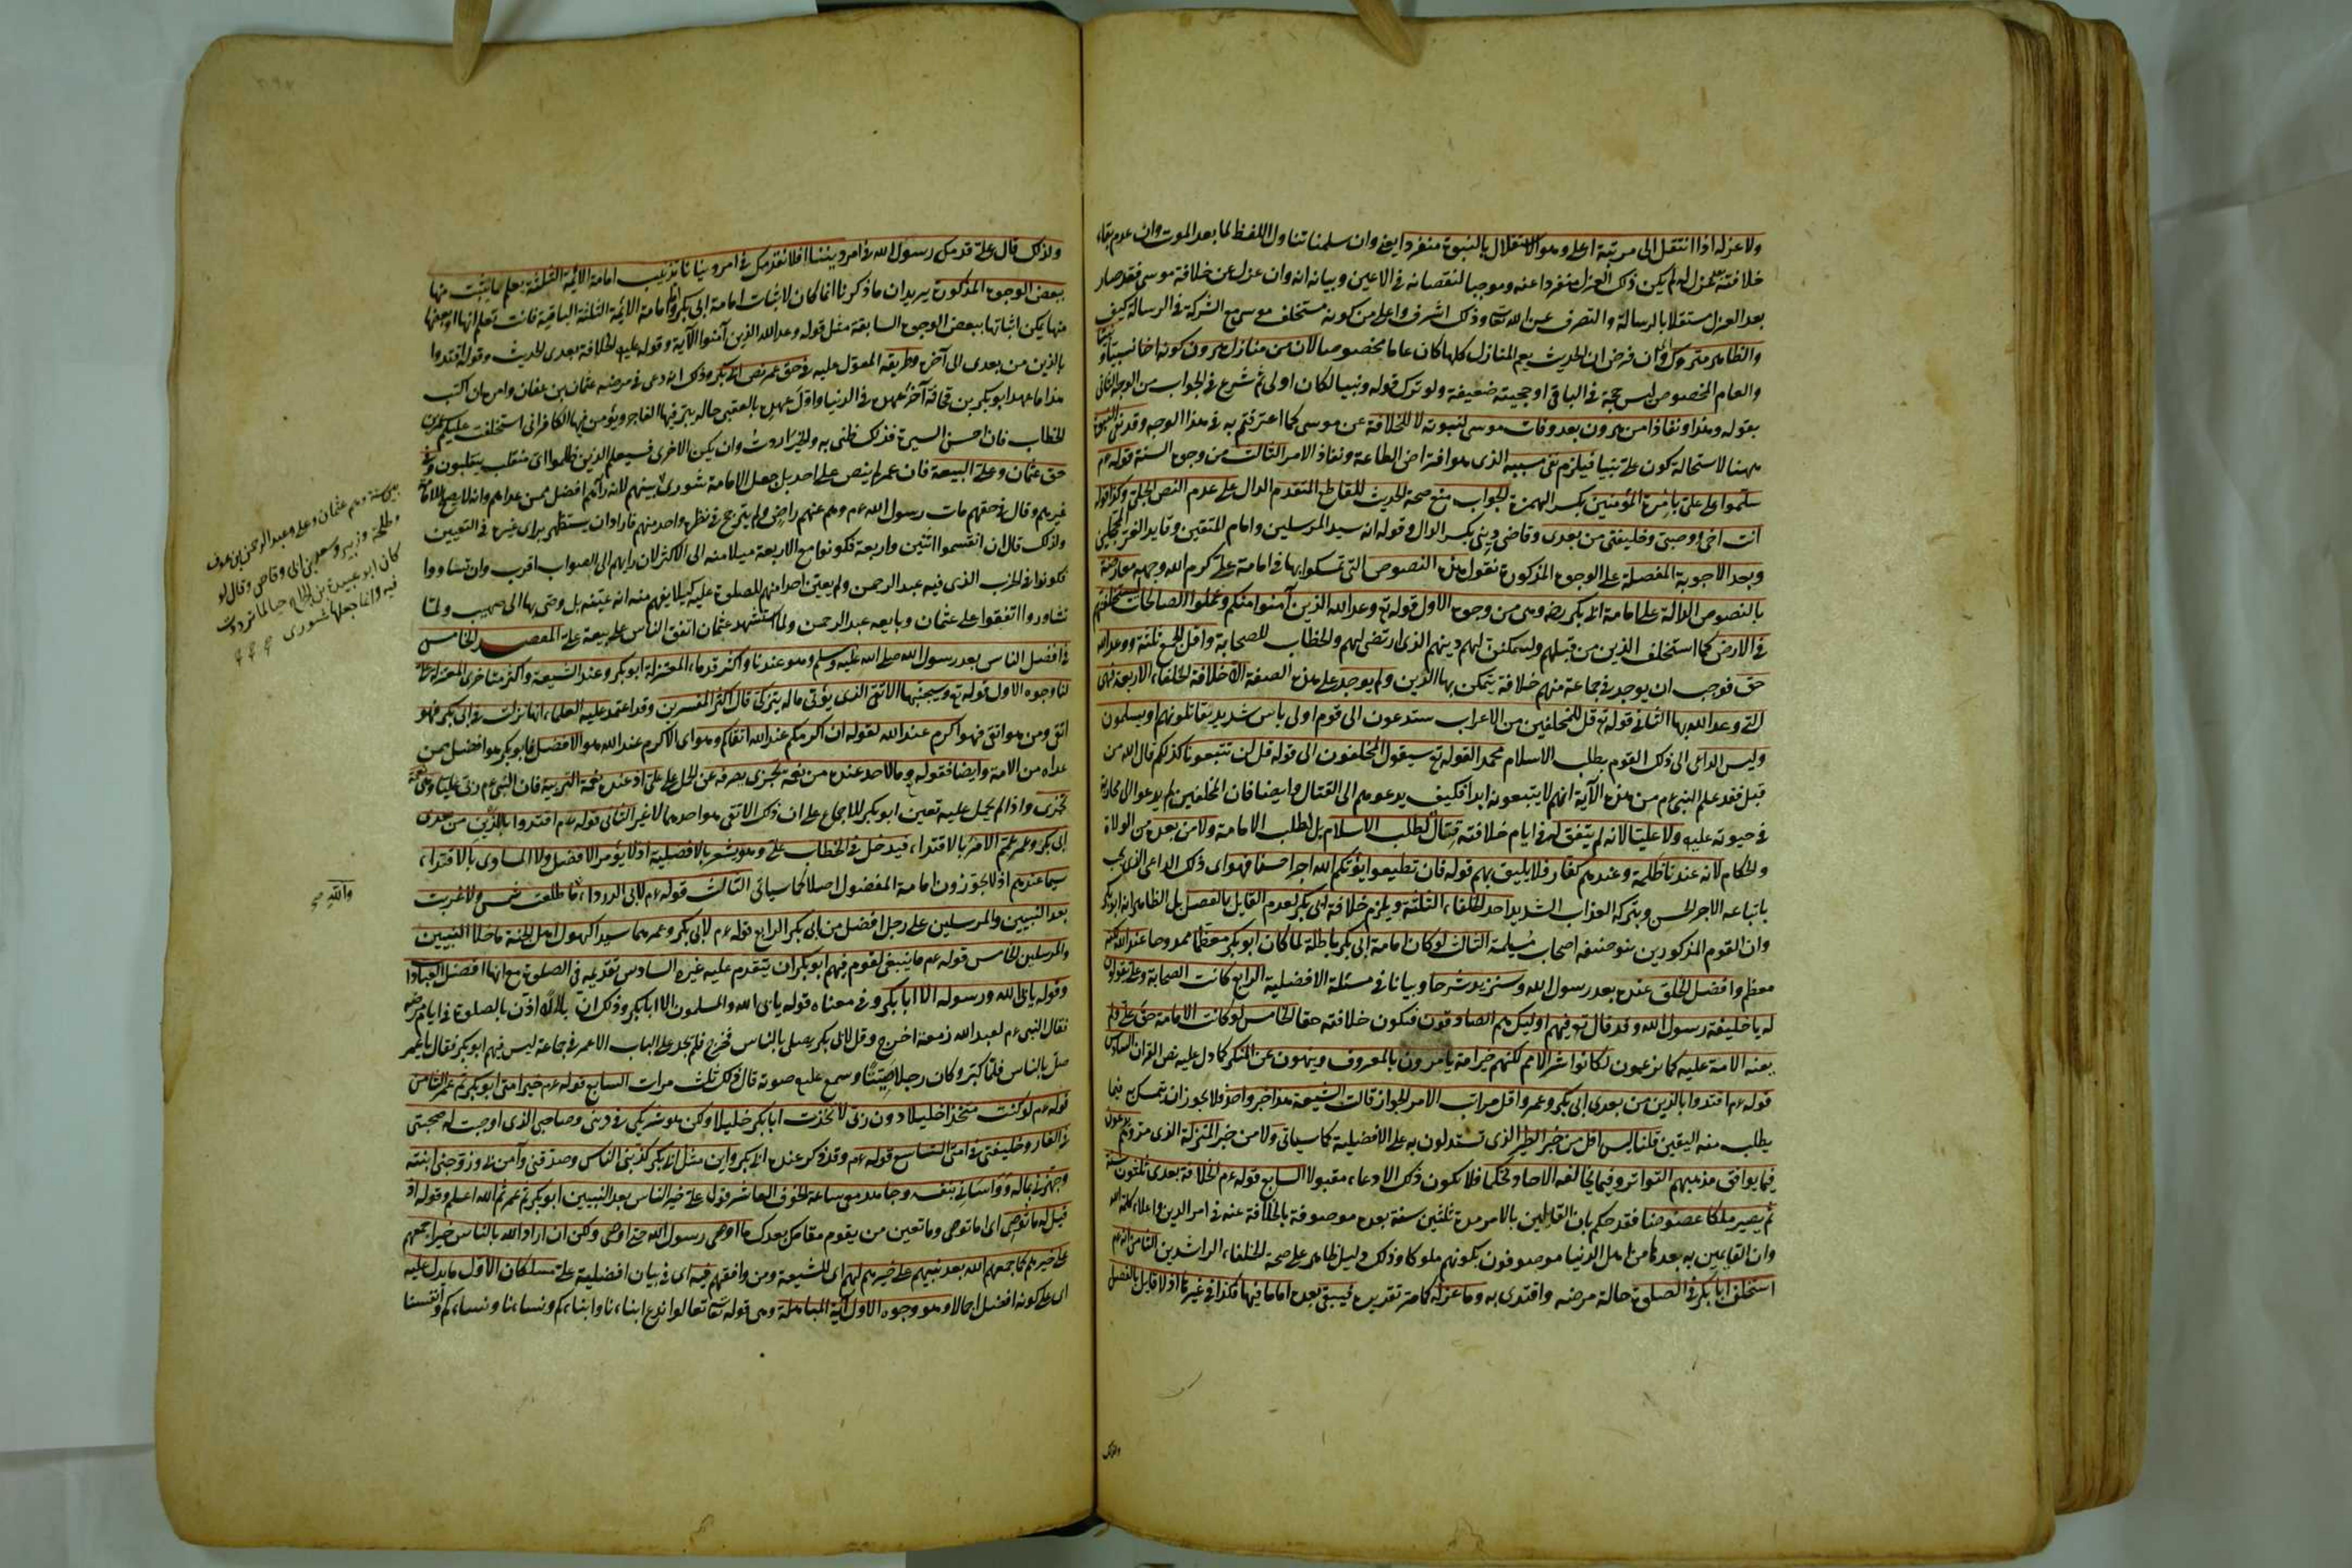 ولا عزله اذا انتقل الى مرتبة اعلى وهو الاستقلال بالنبوة منفردا يعنى وان سلمنا تناول اللفظ لما بعد الموت وان عدم بقاء
خلافته عزل له لم يكن ذلك العزل منفردا عنه وموجبا لنقصانه فى الاعين وبيانه انه وان عزل عن خلافة موسى فقد صار
بعد العزل مستقلا بالرسالة والتصرف عن الله تعالى وذلك اشرف واعلى من كونه مستخلف موسى مع الشركة فى الرسالة كيف
والظاهر متروك وان فرض ان الحديث يعم المنازل كلها كان عاما مخصوصا لان من منازل هرون كونه اخا نسبيا
والعام المخصوص ليس حجة فى الباقى او حجيته ضعيفة ولو ترك قوله ونبيا لكان اولى ثم شرع فى الجواب من الوجه الثانى
بقوله وهذا ونفاذ امر هرون بعد وفات موسى لنبوته لا للخلافة عن موسى كما اعترفتم به فى هذا الوجه وقد نفى النبوة
ههنا لاستحالة كون على نبيا فيلزم نفى مسببه الذى هو افتراض الطاعة ونفاذ الامر الثالث من وجوه السنة قوله عم
سلموا على على بامرة المؤمنين بكسر الهمزة الجواب منع صحة الحديث للقاطع المتقدم الدال على عدم النص الجلى وكذا قوله
انت اخى ووصيى وخليفتى من بعدى وقاضى دينى بكسر الدال وقوله انه سيد المرسلين وامام المتقين وقايد الغر المحجلين
وبعد الاجوبة المفصلة على الوجوه المذكورة نقول هذه النصوص التى تمسكوا بها فى امامة على كرم الله وجهه معارضة
بالنصوص الدالة على امامة ابى بكر رضه وهى من وجوه الاول قوله تع وعد الله الذين آمنوا منكم وعملوا الصالحات ليستخلفنهم
فى الارض كما استخلف الذين من قبلهم وليمكنن لهم دينهم الذى ارتضى لهم والخطاب للصحابة واقل الجمع ثلثة ووعد الله
حق فوجب ان يوجد فى جماعة منهم خلافة يتمكن بها الدين ولم يوجد على هذه الصفة الا خلافة الخلفاء الاربعة فهى
التى وعد الله بها الثانى قوله تع قل للمخلفين من الاعراب ستدعون الى قوم اولى باس شديد تقاتلونهم او يسلمون
وليس الداعى الى ذلك القوم بطلب الاسلام محمدا لقوله تع سيقول المخلفون الى قوله قل لن تتبعونا كذلكم قال الله من
قبل فقد علم النبى عم من هذه الآية انهم لا يتبعونه ابدا فكيف يدعوهم الى القتال وايضا فان المخلفين لم يدعوا الى محاربة
فى حيوته عليه ولا عليا لانه لم يتفق له فى ايام خلافته قتال لطلب الاسلام بل لطلب الامامة ولا من بعده من الولاة
والحكام لانه عندنا ظلمة وعندهم كفار فلا يليق بهم قوله فان تطيعوا يؤتكم الله اجرا حسنا فهو اى ذلك الداعى الذى يجب
باتباعه الاجر الحسن وبتركه العذاب الشديد احد الخلفاء الثلثة ويلزم خلافة ابى بكر لعدم القايل بالفصل بل الظاهر انه ابو بكر
وان القوم المذكورين بنو حنيفه اصحاب مسيلمة الثالث لو كان امامة ابى بكر باطلة لما كان ابو بكر معظما ممدوحا عند الله لكنه
معظم وافضل الخلق عنده بعد رسول الله وسنزيد شرحا وبيانا فى مسئلة الافضلية الرابع كانت الصحابة وعلى يقولون
له يا خليفة رسول الله وقد قال تع فيهم اوليك هم الصادقون فيكون خلافته حقا الخامس لو كانت الامامة حق على ولم
يعنه الامة عليه كما يزعمون لكانوا شر الامم لكنهم خير امة يامرون بالمعروف وينهون عن المنكر كما دل عليه نص القرآن السادس
قوله عم اقتدوا بالذين من بعدى ابى بكر وعمر واقل مراتب الامر الجواز قالت الشيعة هذا خبر واحد فلا يجوز ان يتمسك به فيما
يطلب منه اليقين قلنا ليس اقل من خبر الطير الذى تستدلون به على الافضلية كما سياتى ولا من خبر المنزلة الذى مر وهم يدعون
فيما يوافق مذهبهم التواتر وفيما يخالفه الاحاد تحكما فلا يكون ذلك الادعاء مقبولا السابع قوله عم الخلافة بعدى ثلثون سنة
ثم يصير ملكا عضوضا فقد حكم بان القايمين بالامر مدة ثلثين سنة بعده موصوفة بالخلافة عنه فى امر الدين واعلاء كلمة الله
وان القايمين به بعدها من اهل الدنيا موصوفون بكونهم ملوكا وذلك دليل ظاهر على صحة الخلفاء الراشدين الثامن انه عم
استخلف ابا بكر فى الصلوة حالة مرضه واقتدى به وما عزله كما مر تقديره فيبقى بعده اماما فيها فكذا فى غيرها اذ لا قايل بالفصل
ولذلك
ولذلك قال على قدمك رسول الله فى امر ديننا افلا نقدمك فى امر دنيانا تذنيب امامة الائمة الثلثة يعلم ما يثبت منها
ببعض الوجوه المذكورة يريد ان ما ذكرنا انما كان لاثبات امامة ابى بكر واما امامة الائمة الثلثة الباقية فانت تعلم انها او بعضها
منها يمكن اثباتها ببعض الوجوه السابقة مثل قوله وعد الله الذين آمنوا الآية وقوله عليه الخلافة بعدى الحديث وقوله اقتدوا
بالذين من بعدى الى آخره وطريقه المعول عليه فى حق عمر نص ابى بكر وذلك انه دعى فى مرضه عثمان بن عفان وامره ان اكتب
هذا ما عهد ابو بكر بن قحافة آخر عهده فى الدنيا واول عهده بالعقبى حاله يبر فيها الفاجر ويؤمن فيها الكافر انى استخلفت عليكم عمر بن
الخطاب فان احسن السيرة فذلك ظنى به والخير اردت وان يكن الاخرى فسيعلم الذين ظلموا اى منقلب ينقلبون وفى
حق عثمان وعلى البيعة فان عمر لم ينص على احد بل جعل الامامة شورى بينهم لانه رآهم افضل ممن عداهم وانه لا يصلح للامامة
غيرهم وقال فى حقهم مات رسول الله عم وهو عنهم راضى ولم يترجح فى نظره واحد منهم فاراد ان يستظهر براى غيره فى التعيين
ولذلك قال ان انقسموا اثنين واربعة فكونوا مع الاربعة ميلا منه الى الاكثر لان رايهم الى الصواب اقرب وان تساووا
فكونوا فى الحزب الذى فيه عبد الرحمن ولم يعين احدا منهم للصلوة عليه كيلا يفهم منه انه عينه بل وصى بها الى صهيب ولما
تشاوروا اتفقوا على عثمان وبايعه عبد الرحمن ولما استشهد عثمان اتفق الناس على بيعة على المقصد الخامس
فى افضل الناس بعد رسول الله صلى الله عليه وسلم وهو عندنا واكثر قدماء المعتزلة ابو بكر وعند الشيعة واكثر متاخرى المعتزلة على
لنا وجوه الاول قوله تع وسيجنبها الاتقى الذى يؤتى ماله يتزكى قال اكثر المفسرين وقد اعتمد عليه العلماء انها نزلت فى ابى بكر فهو
اتقى ومن هو اتقى فهو اكرم عند الله لقوله ان اكرمكم عند الله اتقاكم وهو اى الاكرم عند الله هو الافضل فابو بكر هو افضل ممن
عداه من الامة وايضا فقوله وما لاحد عنده من نعمة تجزى يصرفه عن الحمل على على اذ عنده نعمة التربية فان النبى عم ربى عليا وهى نعمة
تجزى واذا لم يحمل عليه تعين ابو بكر للاجماع على ان ذلك الاتقى هو احدهما لا غير الثانى قوله عم اقتدوا بالذين من بعدى
ابى بكر وعمر عم الامر بالاقتداء فيدخل فى الخطاب على وهو يشعر بالافضلية اذ لا يؤمر الافضل ولا المساوى بالاقتداء
سيما عندهم اذ لا يجوزون امامة المفضول اصلا كما سياتى الثالث قوله عم لابى الدرداء ما طلعت شمس ولا غربت
بعد النبيين والمرسلين على رجل افضل من ابى بكر الرابع قوله عم لابى بكر وعمر هما سيدا كهول اهل الجنة ما خلا النبيين
والمرسلين الخامس قوله عم ما ينبغى لقوم فيهم ابو بكر ان يتقدم عليه غيره السادس تقديمه فى الصلوة مع انها افضل العبادات
وقوله يابى الله ورسوله الا ابا بكر وفى معناه قوله يابى الله والمسلمون الا ابا بكر وذلك ان بلالا اذن بالصلوة فى ايام مرضه
فقال النبى عم لعبد الله زمعة اخرج وقل لابى بكر يصلى بالناس فخرج فلم يجد على الباب الا عمر فى جماعة ليس فيهم ابو بكر فقال يا عمر
صل بالناس فلما كبر وكان رجلا صيتا وسمع عليه صوته قال ذلك ثلث مرات السابع قوله عم خير امتى ابو بكر ثم عمر الثامن
قوله عم لو كنت متخذا خليلا دون ربى لاتخذت ابا بكر خليلا ولكن هو شريكى فى دينى وصاحبى الذى اوجبت له صحبتى
فى الغار وخليفتى فى امتى التاسع قوله عم وقد ذكر عنده ابى بكر واين مثل ابى بكر كذبنى الناس وصدقنى وآمن بى وزوجنى ابنته
وجهزنى بماله وواسانى بنفسه وجاهد معى ساعة الخوف العاشر قول على خير الناس بعد النبيين ابو بكر ثم عمر ثم الله اعلم وقوله اذ
قيل له ما توصى اى اما توصى وما تعين من يقوم مقامك بعدك ما اوصى رسول الله حتى اوصى ولكن ان اراد الله بالناس خيرا جمعهم
على خيرهم كما جمعهم الله بعد نبيهم على خيرهم لهم اى للشيعة ومن وافقهم فيه اى فى بيان افضلية على مسلكان الاول ما يدل عليه
اى على كونه افضل اجمالا وهو وجوه الاول آية المباهلة وهى قوله تعالى تعالوا ندع ابناءنا وابناءكم ونساءنا ونساءكم وانفسنا
بين ستة وهم عثمان وعلى وعبد الرحمن بن عوف
وطلحة وزبير وسعد بن ابى وقاص وقال لو
كان ابو عبيدة بن الجراح حيا لما ترددت
فيه وانما جعلها شورى
والله صح